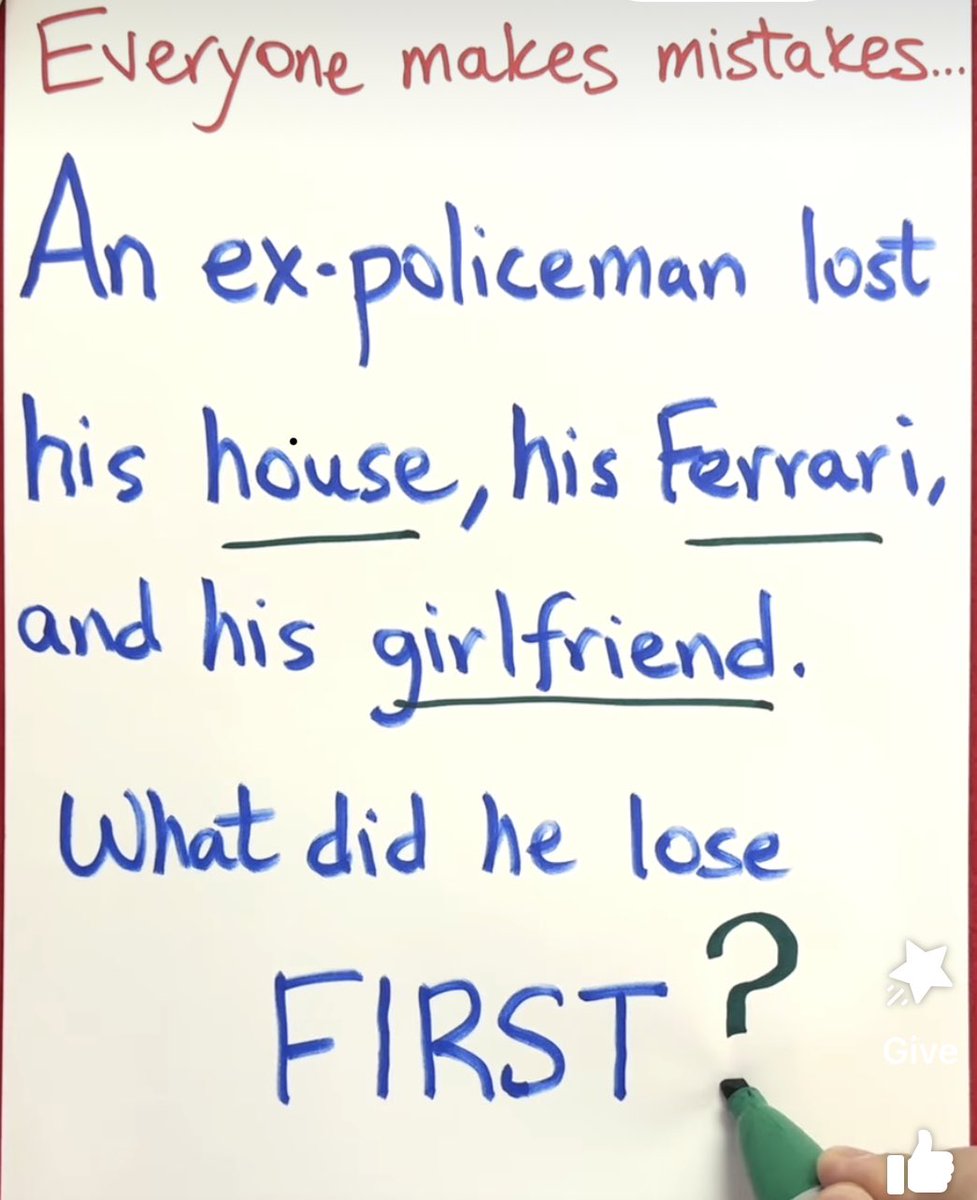 Everyone makes mistakes...
An ex-policeman lost
his house, his Ferrari,
and his girlfriend.
What did he lose
FIRST?
Give